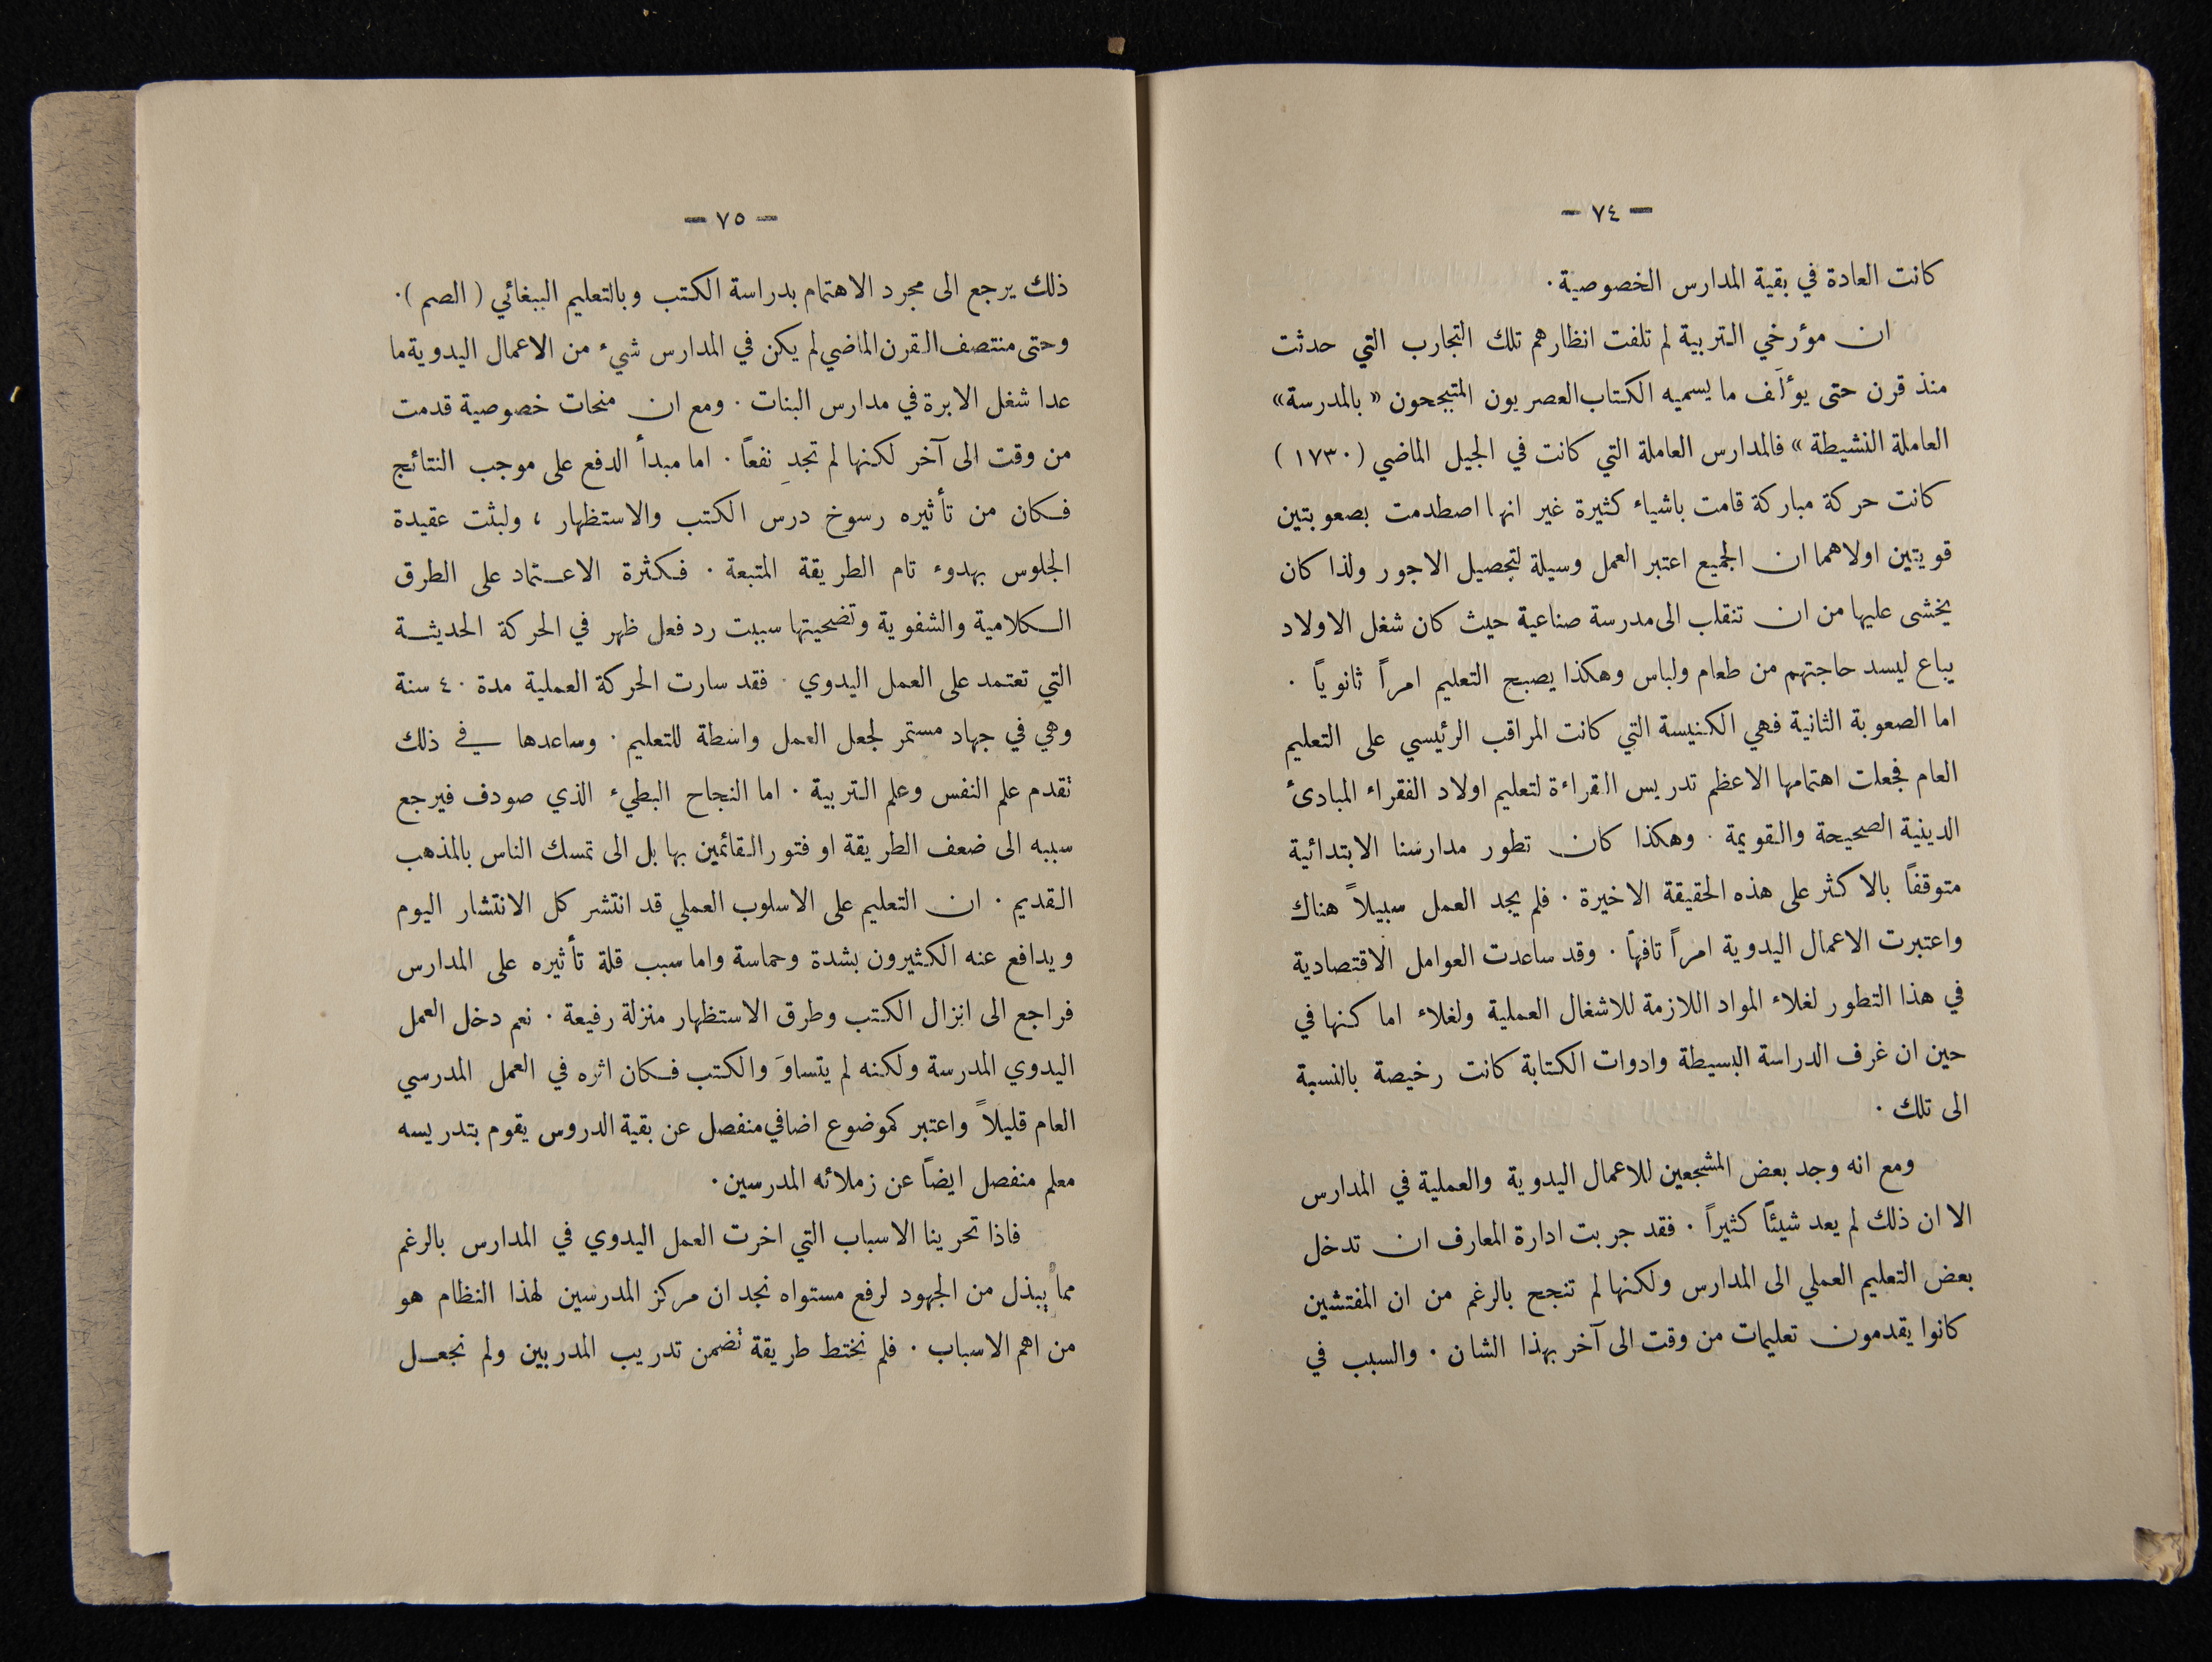 — ٧٤ —
كانت العادة في بقية المدارس الخصوصية.
ان مؤرخي التربية لم تلفت انظارهم تلك التجارب التي حدثت
منذ قرن حتى يؤلَف ما يسميه الكتاب العصريون المتبجحون « بالمدرسة»
العاملة النشيطة » فالمدارس العاملة التي كانت في الجيل الماضي (١٧٣٠)
كانت حركة مباركة قامت باشياء كثيرة غير انها اصطدمت بصعوبتين
قويتين اولاهما ان الجميع اعتبر العمل وسيلة لتحصيل الاجور ولذا كان
يخشى عليها من ان تنقلب الى مدرسة صناعية حيث كان شغل الاولاد
يباع ليسد حاجتهم من طعام ولباس وهكذا يصبح التعليم امراً ثانوياً .
اما الصعوبة الثانية فهي الكنيسة التي كانت المراقب الرئيسي على التعليم
العام فجعلت اهتمامها الاعظم تدريس القراءة لتعليم اولاد الفقراء المبادئ
الدينية الصحيحة والقويمة . وهكذا كان تطور مدارسنا الابتدائية
متوقفاً بالاكثر على هذه الحقيقة الاخيرة . فلم يجد العمل سبيلاً هناك
واعتبرت الاعمال اليدوية امراً تافهاً . وقد ساعدت العوامل الاقتصادية
في هذا التطور لغلاء المواد اللازمة للاشغال العملية ولغلاء اماكنها في
حين ان غرف الدراسة البسيطة وادوات الكتابة كانت رخيصة بالنسبة
الى تلك .
ومع انه وجد بعض المشجعين للاعمال اليدوية والعملية في المدارس
الا ان ذلك لم يعد شيئاً كثيراً . فقد جربت ادارة المعارف ان تدخل
بعض التعليم العملي الى المدارس ولكنها لم تنجح بالرغم من ان المفتشين
كانوا يقدمون تعليمات من وقت الى آخر بهذا الشان . والسبب في
— ٧٥ —
ذلك يرجع الى مجرد الاهتمام بدراسة الكتب وبالتعليم الببغائي ( الصم ).
وحتى منتصف القرن الماضي لم يكن في المدارس شيء من الاعمال اليدوية ما
عدا شغل الابرة في مدارس البنات . ومع ان منحات خصوصية قدمت
من وقت الى آخر لكنها لم تجدِ نفعاً . اما مبدأ الدفع على موجب النتائج
فكان من تأثيره رسوخ درس الكتب والاستظهار ، ولبثت عقيدة
الجلوس بهدوء تام الطريقة المتبعة . فكثرة الاعتماد على الطرق
الكلامية والشفوية وتضحيتها سببت رد فعل ظهر في الحركة الحديثة
التي تعتمد على العمل اليدوي . فقد سارت الحركة العملية مدة ٤٠ سنة
وهي في جهاد مستمر لجعل العمل واسطة للتعليم . وساعدها في ذلك
تقدم علم النفس وعلم التربية . اما النجاح البطيء الذي صودف فيرجع
سببه الى ضعف الطريقة او فتور القائمين بها بل الى تمسك الناس بالمذهب
القديم . ان التعليم على الاسلوب العملي قد انتشر كل الانتشار اليوم
ويدافع عنه الكثيرون بشدة وحماسة واما سبب قلة تأثيره على المدارس
فراجع الى انزال الكتب وطرق الاستظهار منزلة رفيعة . نعم دخل العمل
اليدوي المدرسة ولكنه لم يتساوَ والكتب فكان اثره في العمل المدرسي
العام قليلاً واعتبر كموضوع اضافي منفصل عن بقية الدروس يقوم بتدريسه
معلم منفصل ايضاً عن زملائه المدرسين.
فاذا تحرينا الاسباب التي اخرت العمل اليدوي في المدارس بالرغم
مما يبذل من الجهود لرفع مستواه نجد ان مركز المدرسين لهذا النظام هو
من اهم الاسباب . فلم نختط طريقة تضمن تدريب المدربين ولم نجعل